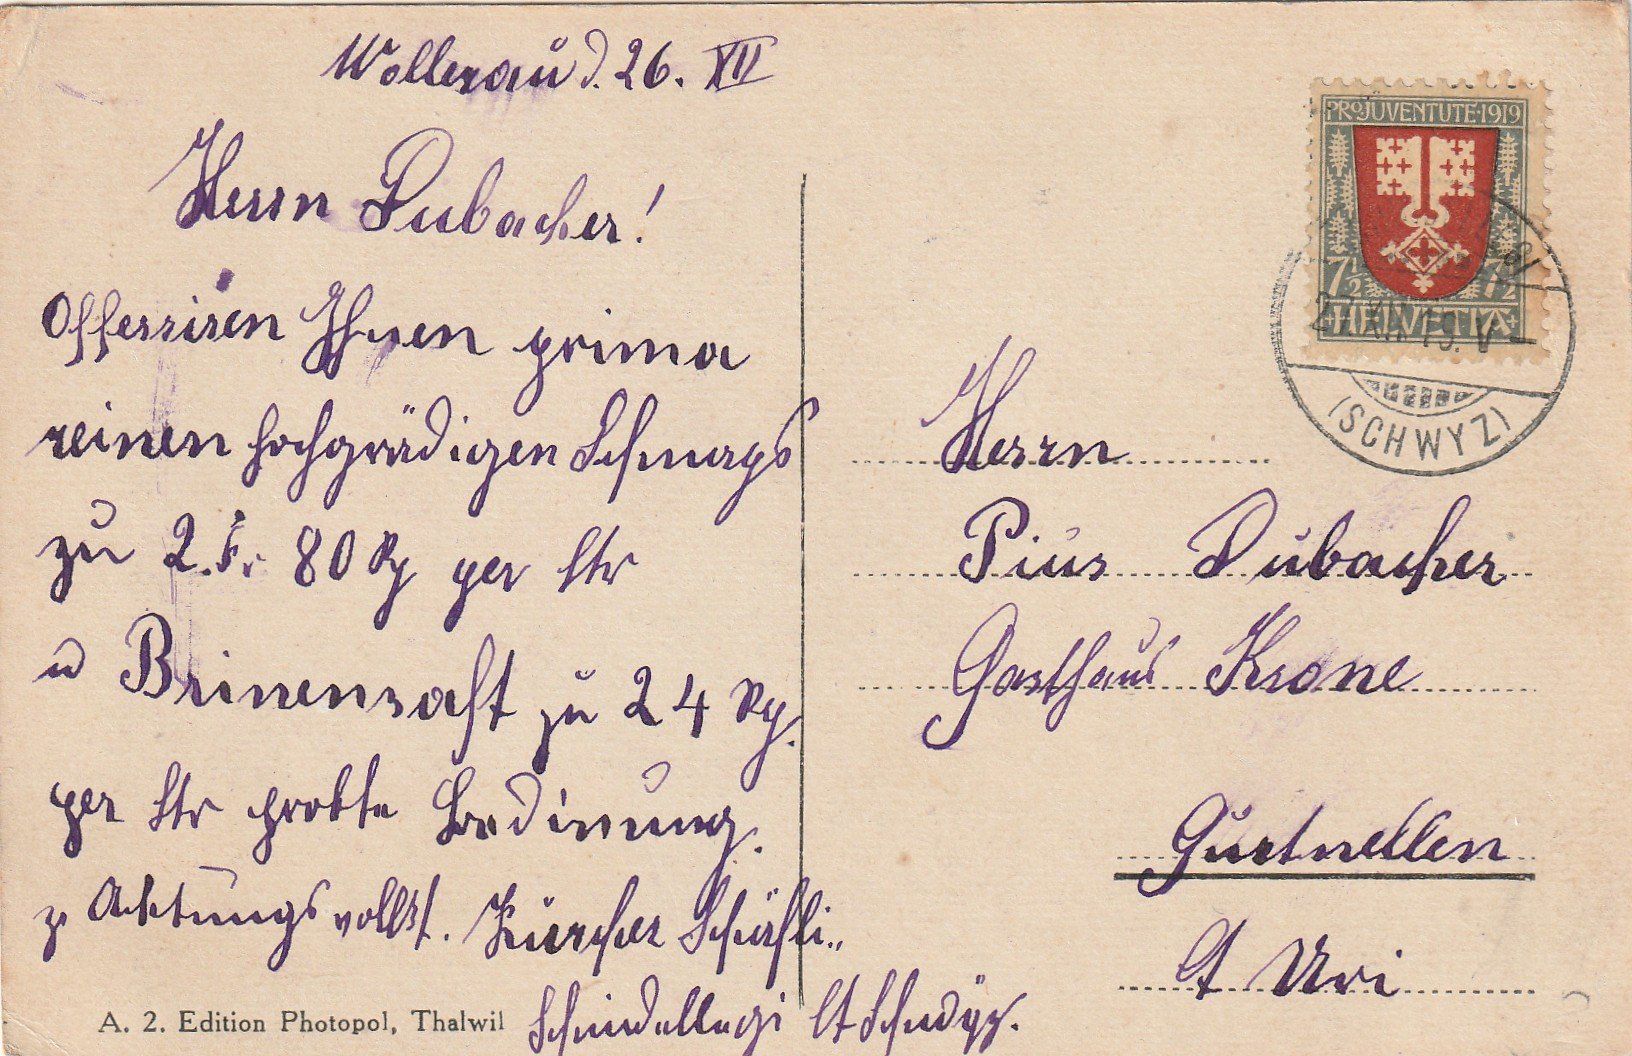 Wollerau d. 26. XII
Herrn Dubacher!
Offerriren Ihnen prima
reinen hochgrädigen Schnaps
zu 2. Fr 80 Rp per ltr
u Brinensaft zu 24 Rp.
per ltr probte Bedinung.
z Achtungsvollst. Zürcher Schäfli..
Schindellegi Ct Schwyz.
A. 2. Edition Photopol, Thalwil
PRO JUVENTUTE·1919
7½ 7½
HELVETIA
27. XII. 19. V
(SCHWYZ)
Herrn
Pius Dubacher
Gasthaus Krone
Gurtnellen
Ct Uri